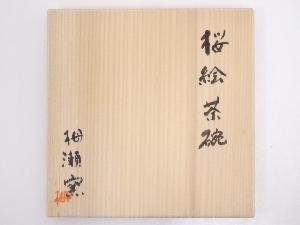 桜絵茶碗
梅瀬窯